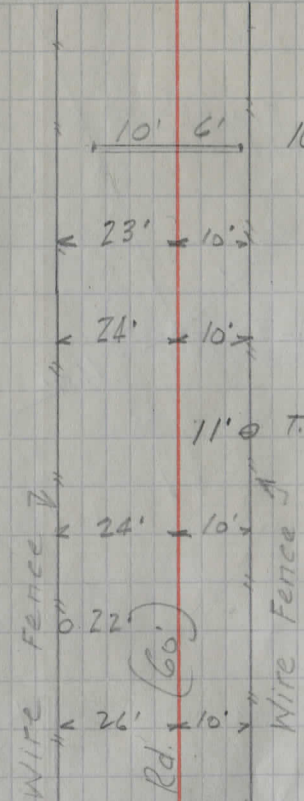 10' 6'
23' 10'
24' 10'
11' T.
24' 10'
22'
26' 10'
Wire Fence
Rd. (60')
Wire Fence